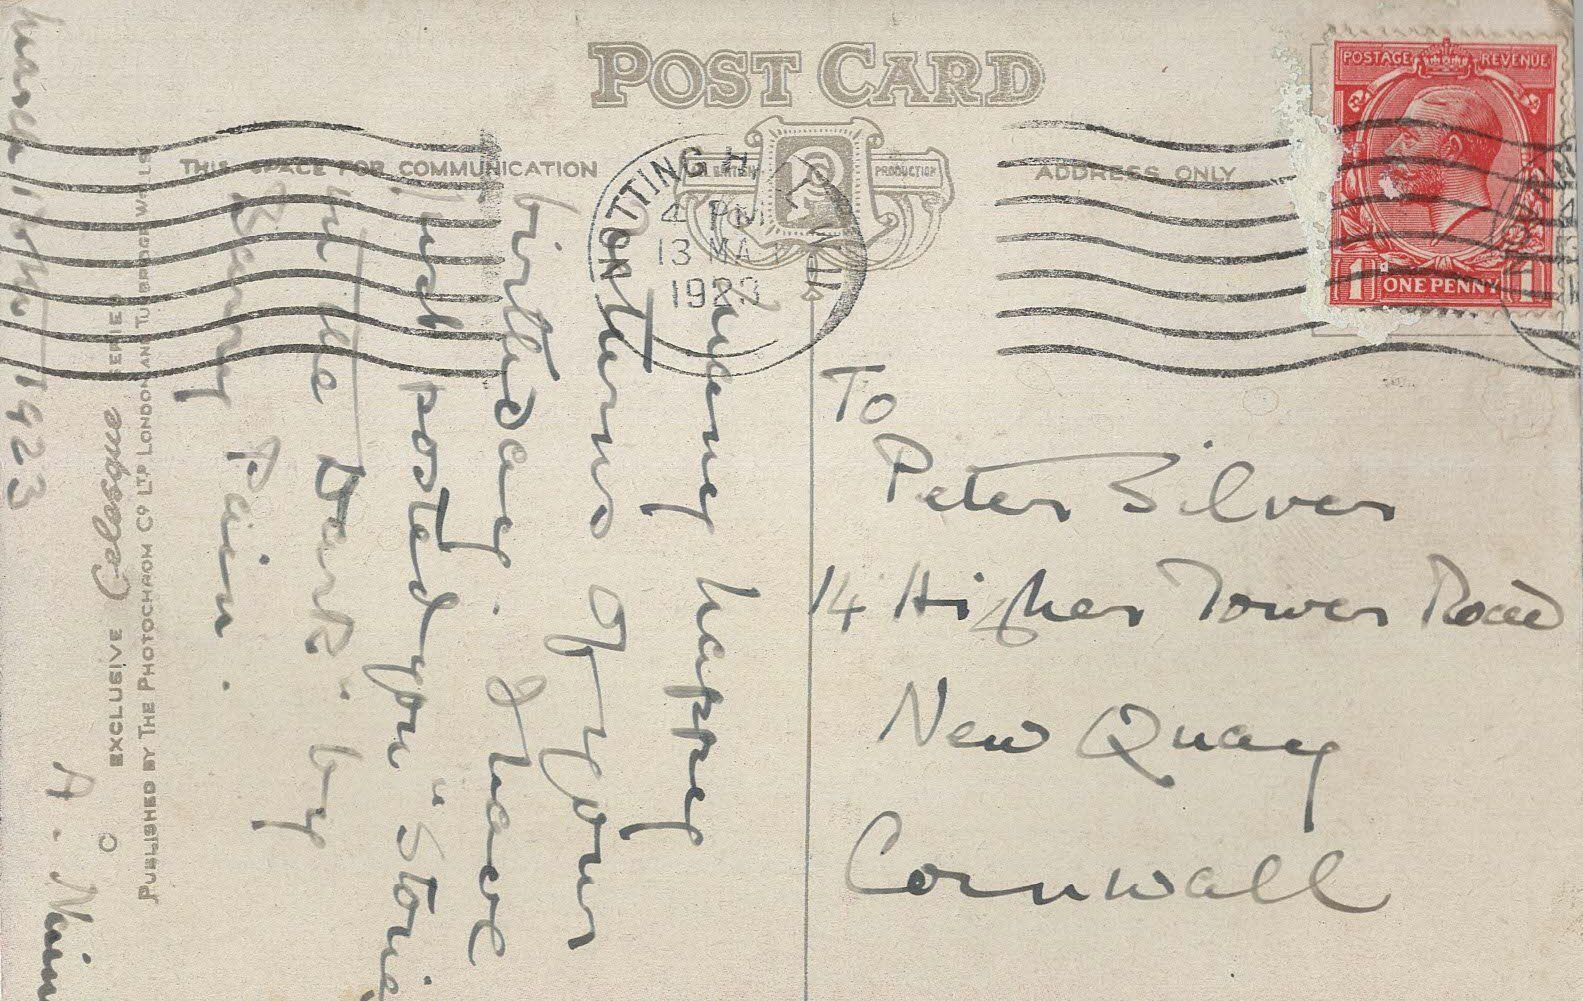 POST CARD
THIS SPACE FOR COMMUNICATION
ADDRESS ONLY
PRODUCTION
NOTTINGHILL W.11
4 PM
13 MA
1923
POSTAGE REVENUE
1d ONE PENNY 1
To
Peter Silver
14 Higher Tower Road
New Quay
Cornwall
many happy
returns of your
birthday. I have
just posted you "Stories
in the Dark" by
Barry Pain.
March 1923
EXCLUSIVE Celesque SERIES
PUBLISHED BY THE PHOTOCHROM CO. LTD LONDON AND TUNBRIDGE WELLS